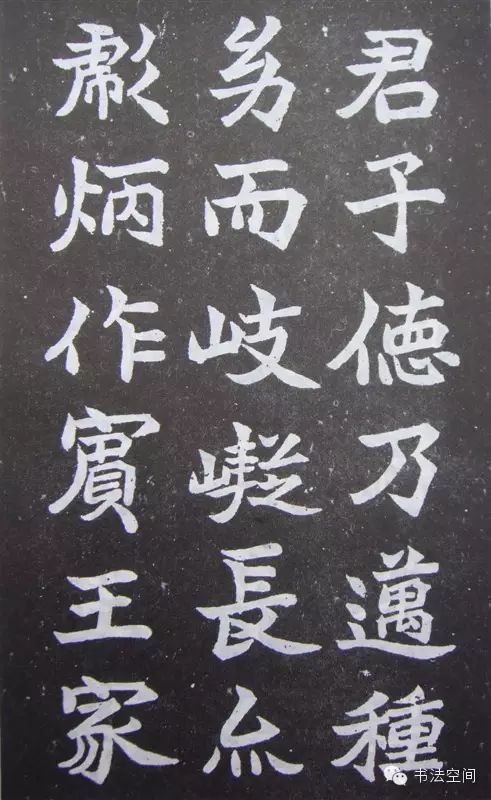 君子徳乃邁種
幼而岐嶷長亦
彪炳作賓王家
书法空间